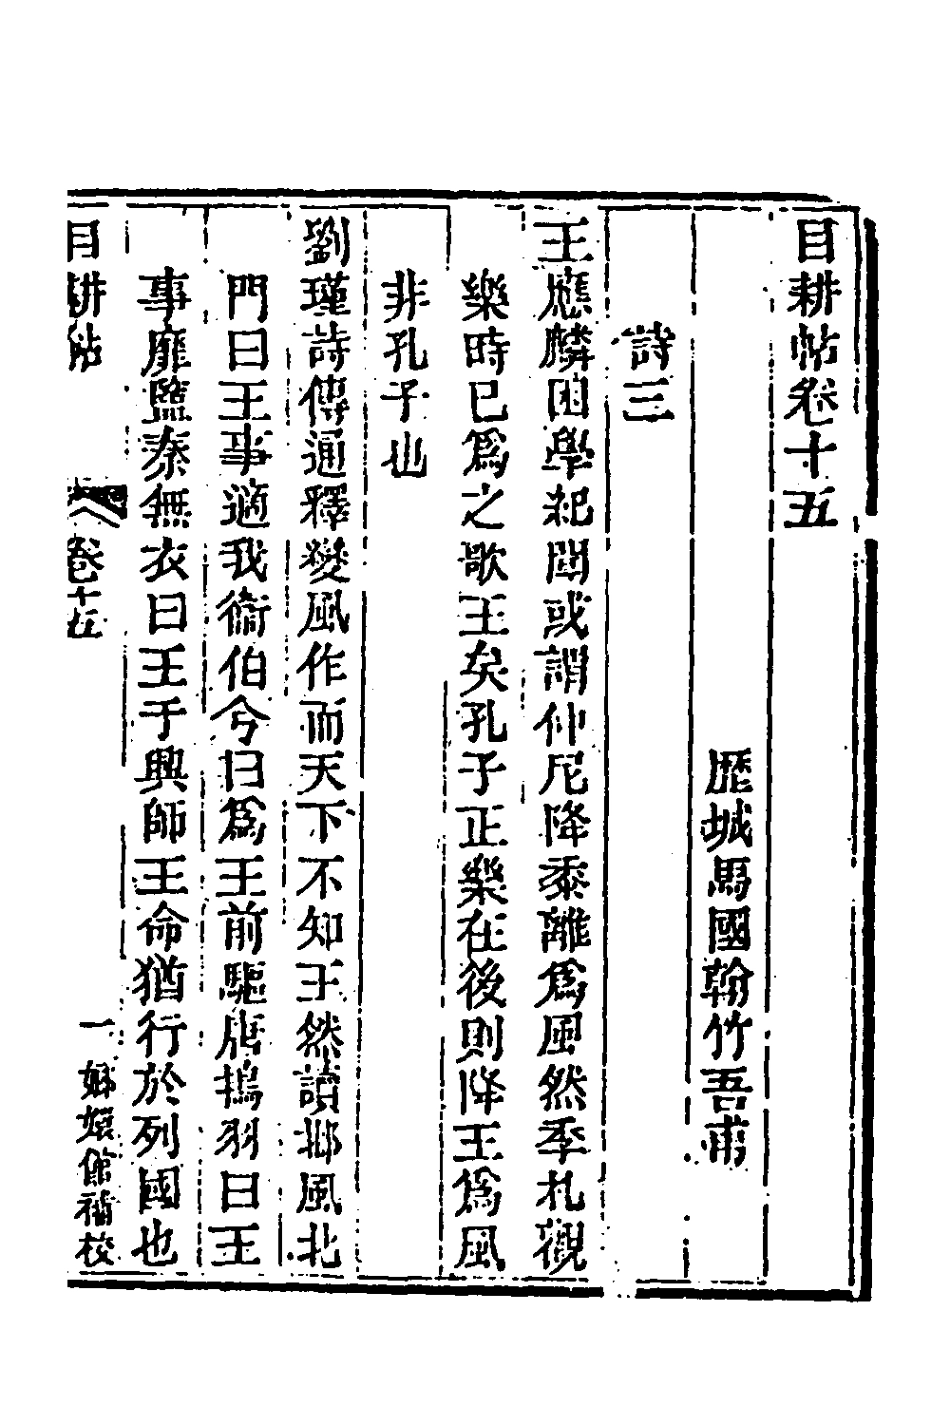 目耕帖卷十五
歷城馬國翰竹吾甫
詩三
王應麟困學紀聞或謂仲尼降黍離爲風然季札觀
樂時已爲之歌王矣孔子正樂在後則降王爲風
非孔子也
劉瑾詩傳通釋變風作而天下不知王然讀邶風北
門曰王事適我衞伯兮曰爲王前驅唐鴇羽曰王
事靡盬秦無衣曰王于興師王命猶行於列國也
目耕帖 卷十五 一 嫏嬛館補校